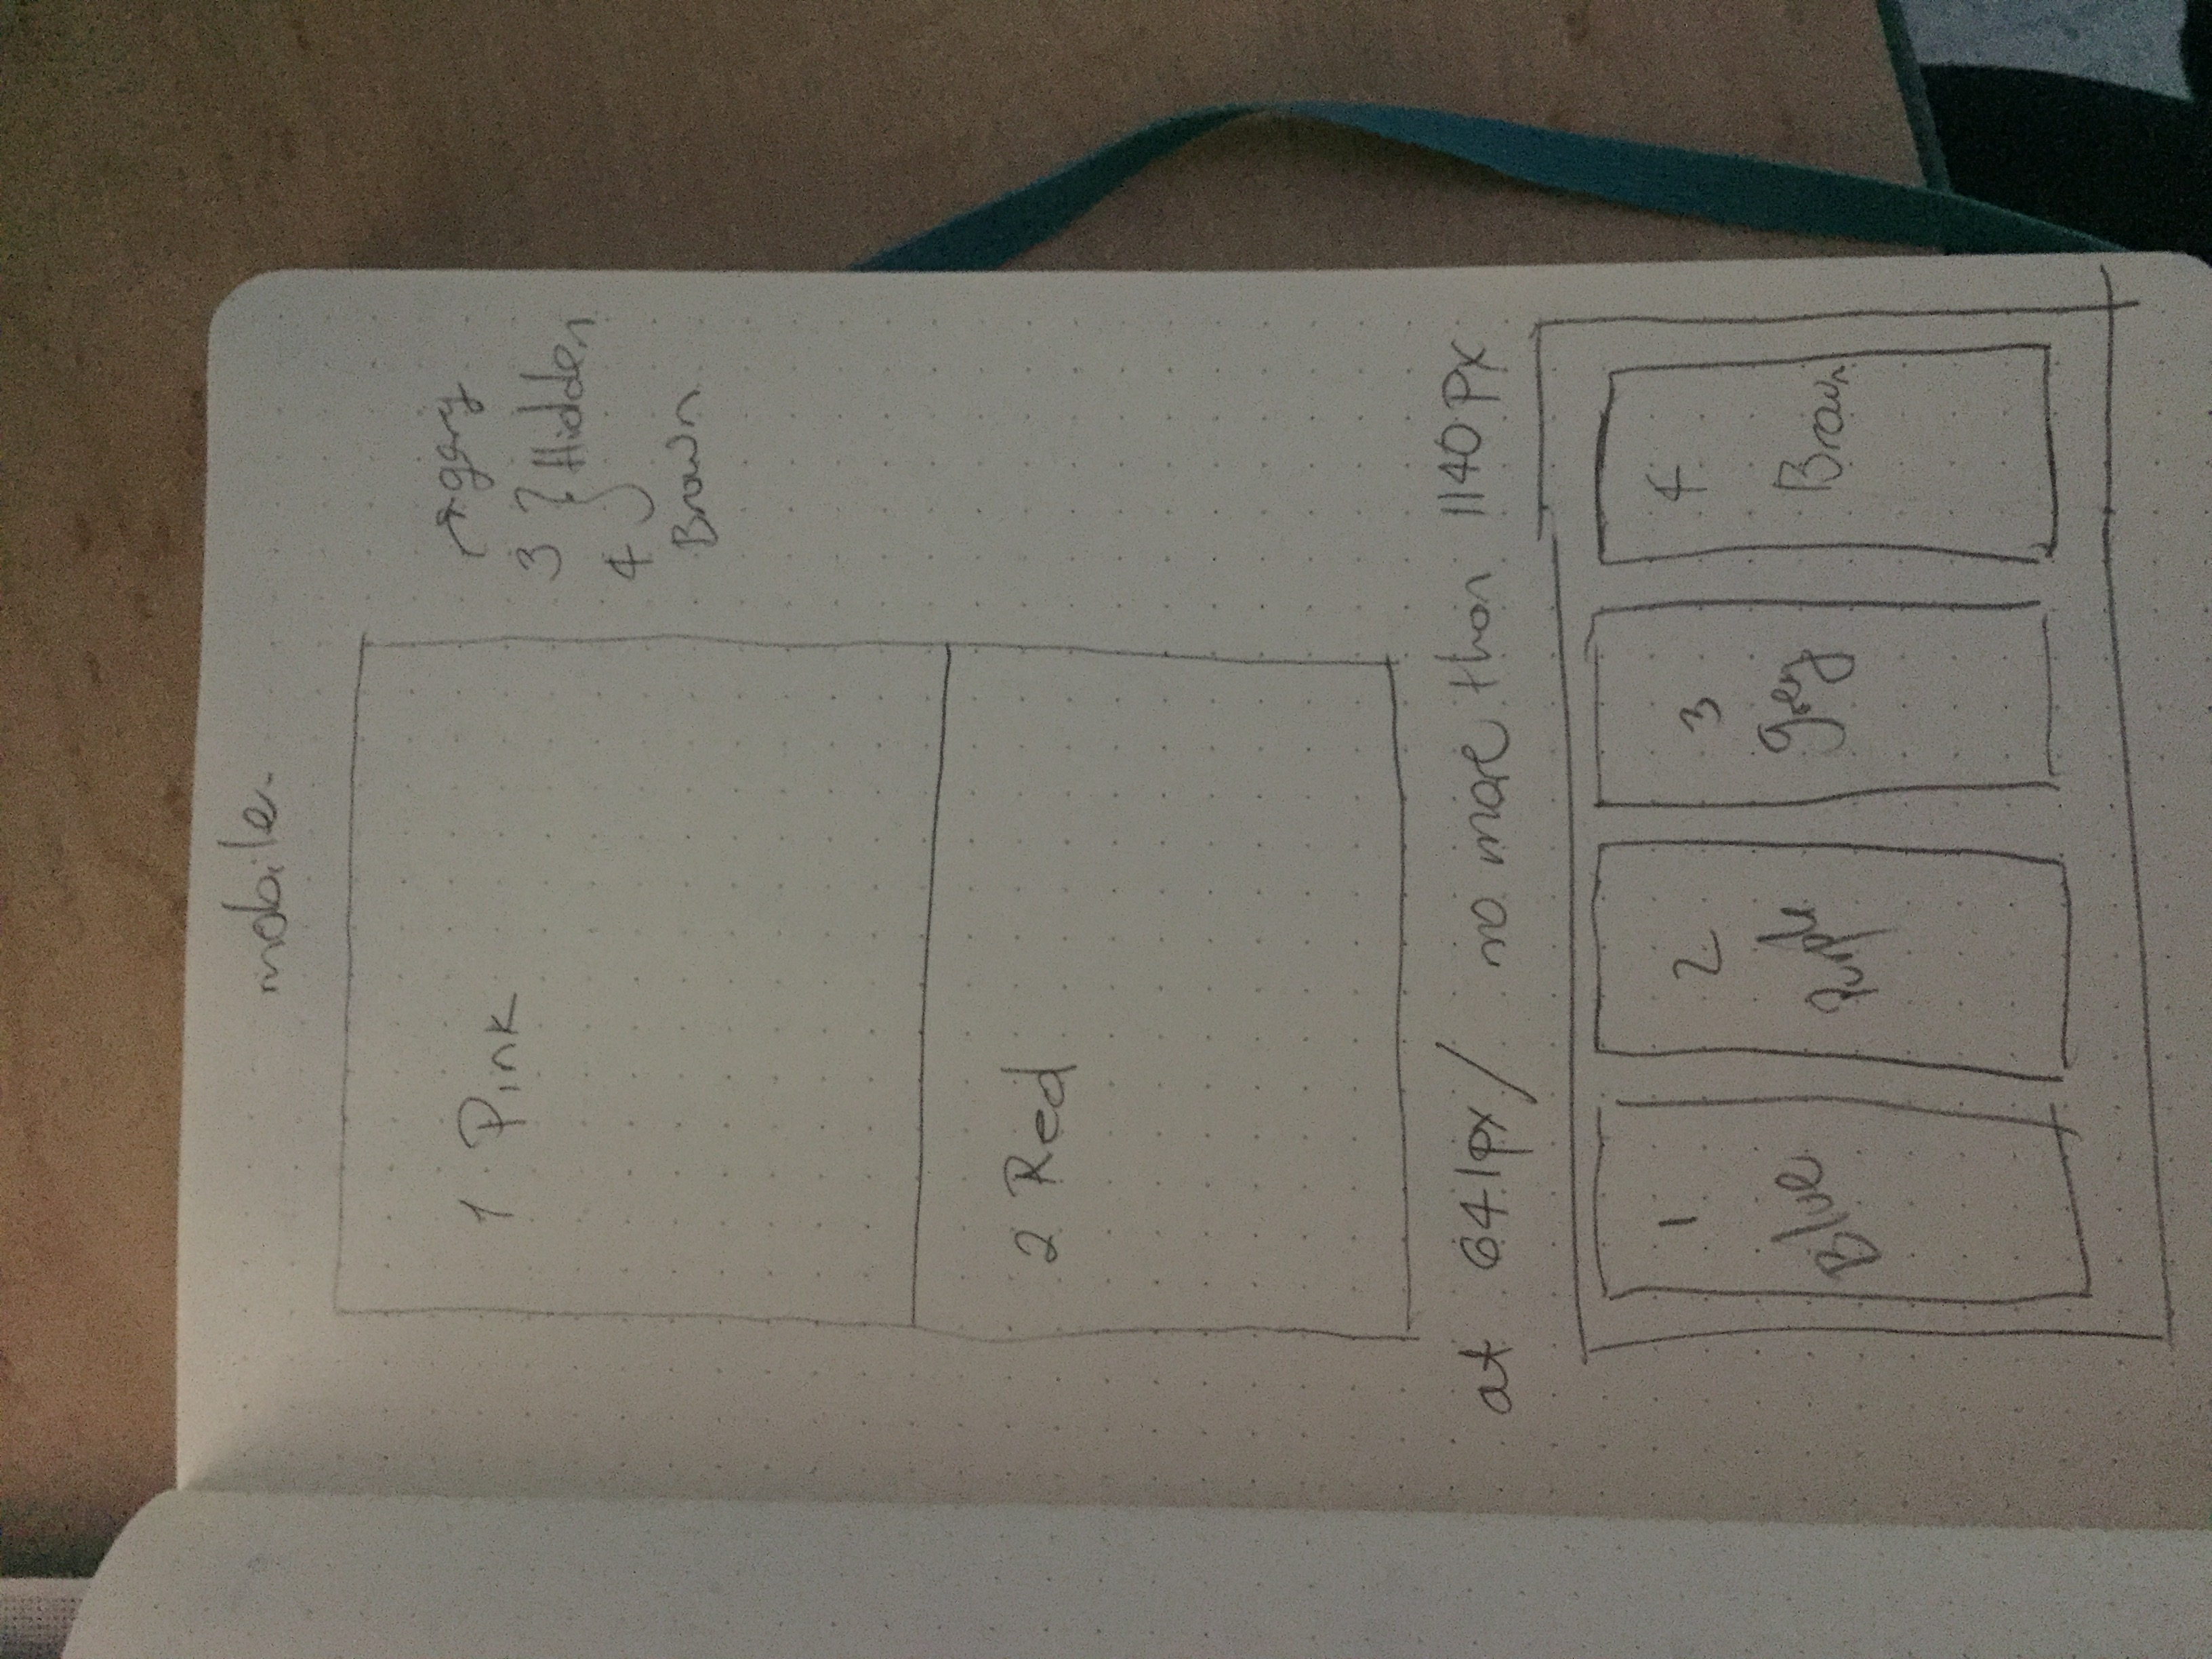 mobile.
1 Pink
gery
3 } Hidden
4
Brown
2 Red
at 641px / no more than 1140px
1 2 3 4
Blue Purple Grey Brown